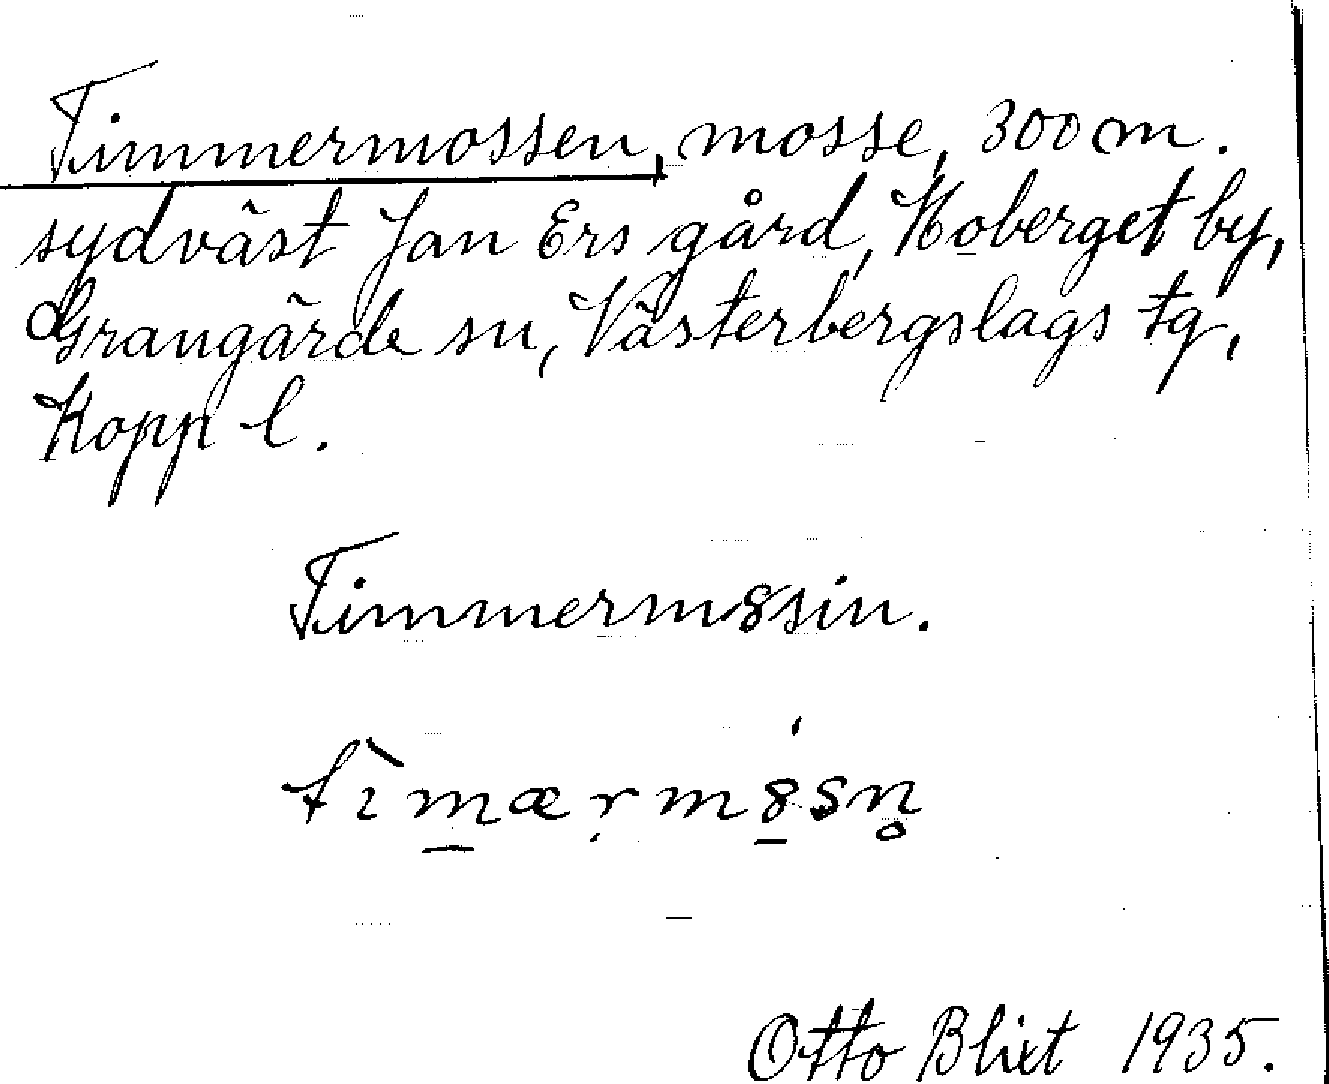 Timmermossen, mosse, 300 m.
sydväst Jan Ers gård, Koberget by,
Grangärde sn, Västerbergslags tg,
Kopp l.
Timmerm8sin.
tìmærm8sn̥
Otto Blixt 1935.